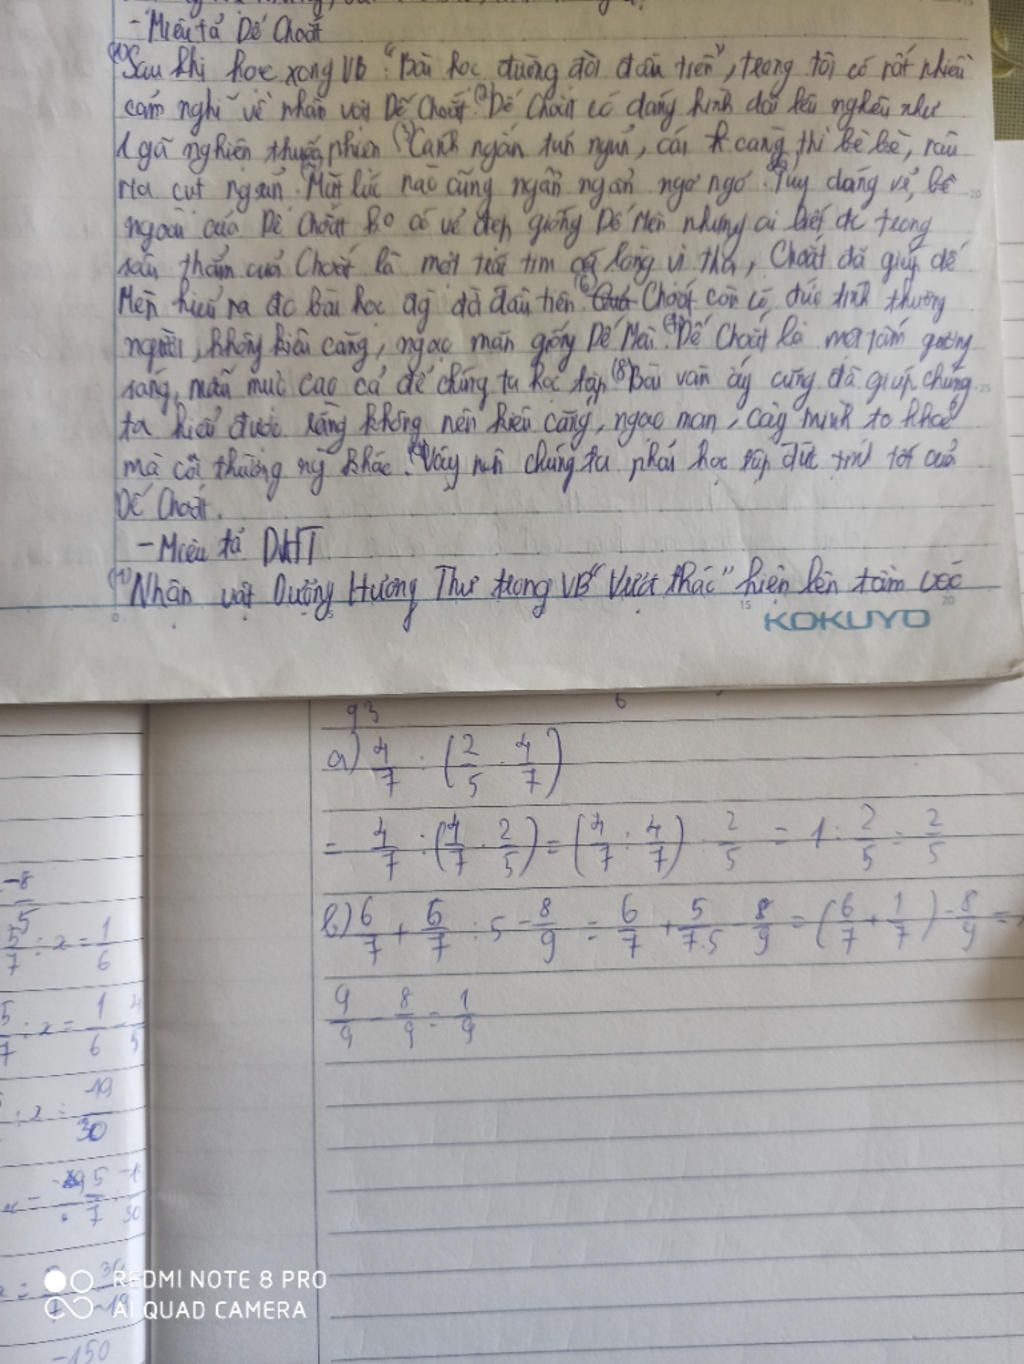 - Miêu tả Dế Choắt
(1) Sau khi học xong VB "Bài học đường đời đầu tiên", trong tôi có rất nhiều
cảm nghĩ về nhân vật Dế Choắt. (2) Dế Choắt có dáng hình dài lêu nghêu như
1 gã nghiện thuốc phiện (3) Cánh ngắn tun ngủn, cái càng thì bè bè, râu
ria cụt ngủn. Mặt lúc nào cũng ngẩn ngẩn ngơ ngơ. Tuy dáng vẻ, bề
ngoài của Dế Choắt ko có vẻ đẹp giống Dế Mèn nhưng ai biết đc trong
sâu thẳm của Choắt là một trái tim lòng vị tha, Choắt đã giúp dế
Mèn hiểu ra đc bài học đg đời đầu tiên (6) Choắt còn có đức tính thương
người, không kiêu căng, ngạo mạn giống Dế Mèn. (7) Dế Choắt là một tấm gương
sáng, mẫu mực cao cả để chúng ta học tập (8) Bài văn ấy cũng đã giúp chúng
ta hiểu được rằng không nên kiêu căng, ngạo mạn, cậy mình to khoẻ
mà coi thường ng khác. (9) Vậy nên chúng ta phải học tập đức tính tốt của
Dế Choắt.
- Miêu tả DHT
(1) Nhân vật Dượng Hương Thư trong VB "Vượt thác" hiện lên tầm vóc
KOKUYO
93
a) 4/7 : (2/5 · 4/7)
= 4/7 : (4/7 · 2/5) = (4/7 : 4/7) · 2/5 = 1 : 2/5 = 2/5
b) 6/7 + 5/7 : 5 - 8/9 = 6/7 + 5/7.5 - 8/9 = (6/7 + 1/7) - 8/9 =
9/9 - 8/9 = 1/9
-8/5
5/7 : x = 1/6
5/7 : x = 1/6 - 4/5
: x = -19/30
-150
REDMI NOTE 8 PRO
AI QUAD CAMERA